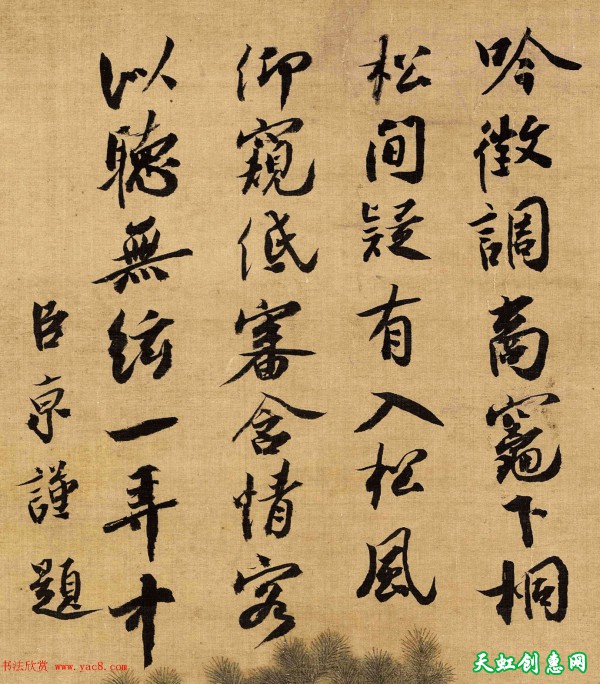 吟徵調商竈下桐
松間疑有入松風
仰窺低審含情客
以聽無絃一弄中
臣京謹題
书法欣赏 www.yac8.com
天虹创惠网